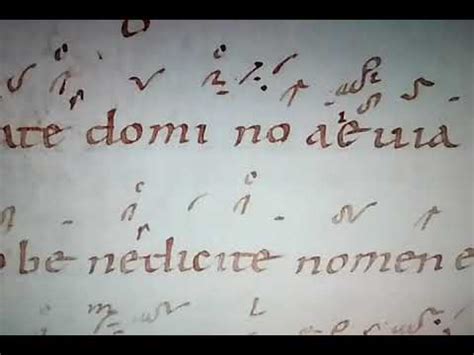 ate domi no aeuia
be nedicite nomen e